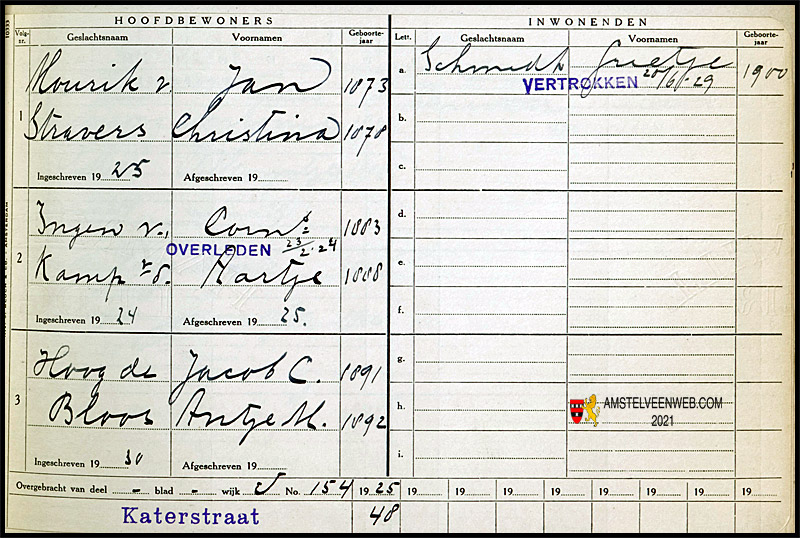 HOOFDBEWONERS
INWONENDEN
Volg-nr.
Geslachtsnaam
Voornamen
Geboorte-jaar
Lett.
Geslachtsnaam
Voornamen
Geboorte-jaar
1
Mourik v.
Jan
1873
Stravers
Christina
1878
Ingeschreven 19 25
Afgeschreven 19
2
Ingen v.
Corns
1883
OVERLEDEN 23/2-24
Kamp v. d.
Aartje
1888
Ingeschreven 19 24
Afgeschreven 19 25.
3
Hoog de
Jacob C.
1891
Bloos
Antje M.
1892
Ingeschreven 19 30
Afgeschreven 19
a.
Schmedt
Grietje
1900
VERTROKKEN 20/6-29
b.
c.
d.
e.
f.
g.
h.
i.
AMSTELVEENWEB.COM
2021
Overgebracht van deel - blad - wijk No. 154 19 25 19 19 19 19 19 19 19 19
Katerstraat
48